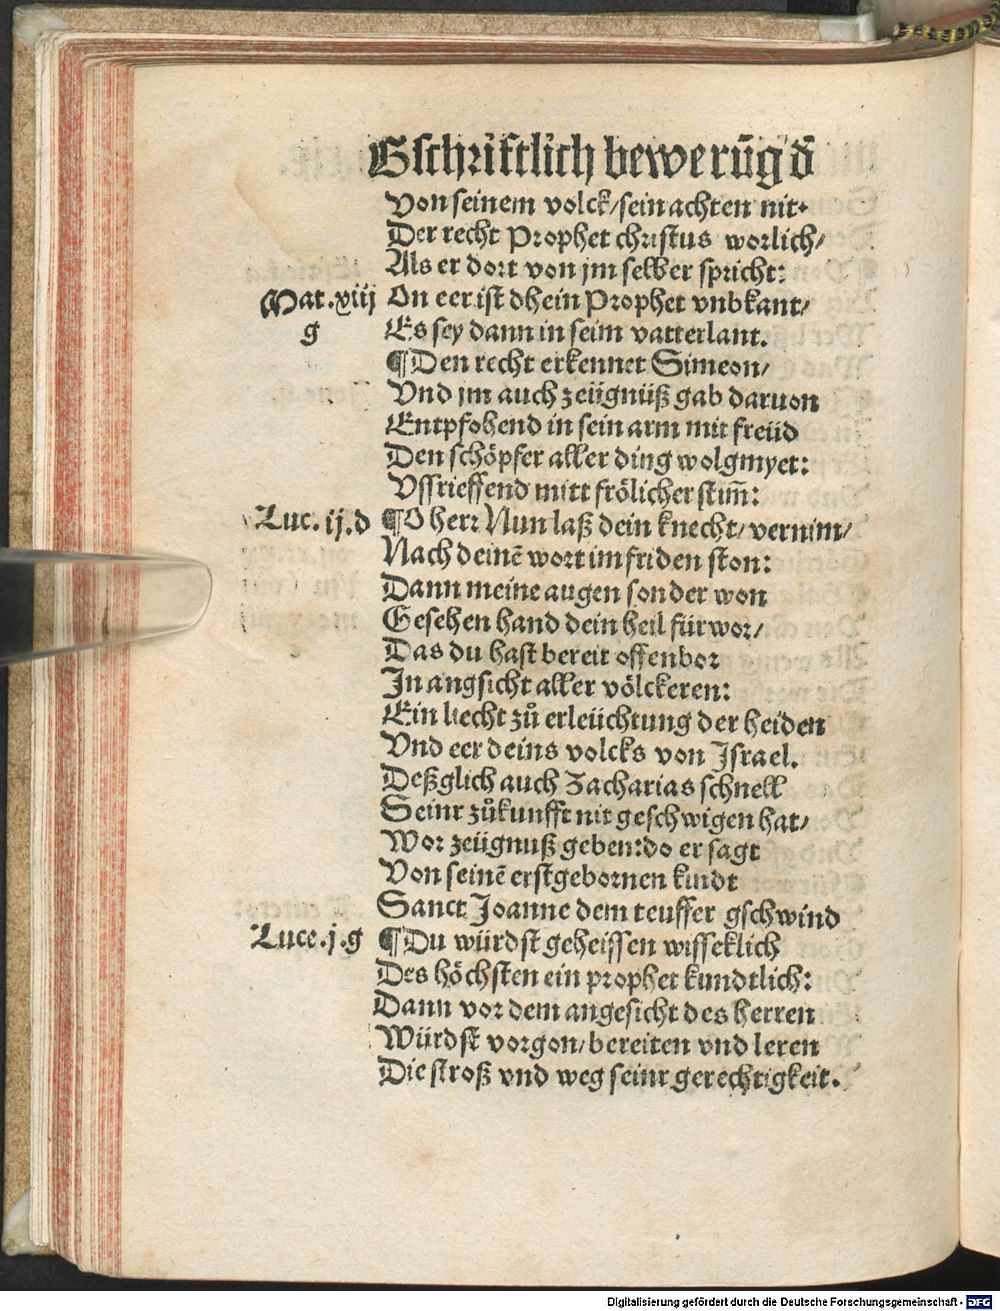 Gschrifftlich bewerũg d̃
Von seinem volck/ sein achten nit.
Der recht Prophet christus worlich/
Als er dort von jm selber spricht:
Mat.xiij On eer ist dhein Prophet vnbkant/
g Es sey dann in seim vatterlant.
¶ Den recht erkennet Simeon/
Vnd jm auch zeügnüß gab daruon
Entpfohend in sein arm mit freüd
Den schöpfer aller ding wolgmyet:
Vssrieffend mitt frölicher stim̃:
Luc.ij.d ¶ O herr Nun laß dein knecht/ vernim/
Nach deinẽ wort im friden ston:
Dann meine augen sonder won
Gesehen hand dein heil fürwor/
Das du hast bereit offenbor
In angsicht aller völckeren:
Ein liecht zů erleüchtung der heiden
Vnd eer deins volcks von Israel.
Deßglich auch Zacharias schnell
Seinr zůkunfft nit geschwigen hat/
Wor zeügnuß geben: do er sagt
Von seinẽ erstgebornen kindt
Sanct Joanne dem teuffer gschwind
Luce.j.g ¶ Du würdst geheissen wisseklich
Des höchsten ein prophet kundtlich:
Dann vor dem angesicht des herren
Würdst vorgon/ bereiten vnd leren
Die stroß vnd weg seinr gerechtigkeit.
Digitalisierung gefördert durch die Deutsche Forschungsgemeinschaft - DFG